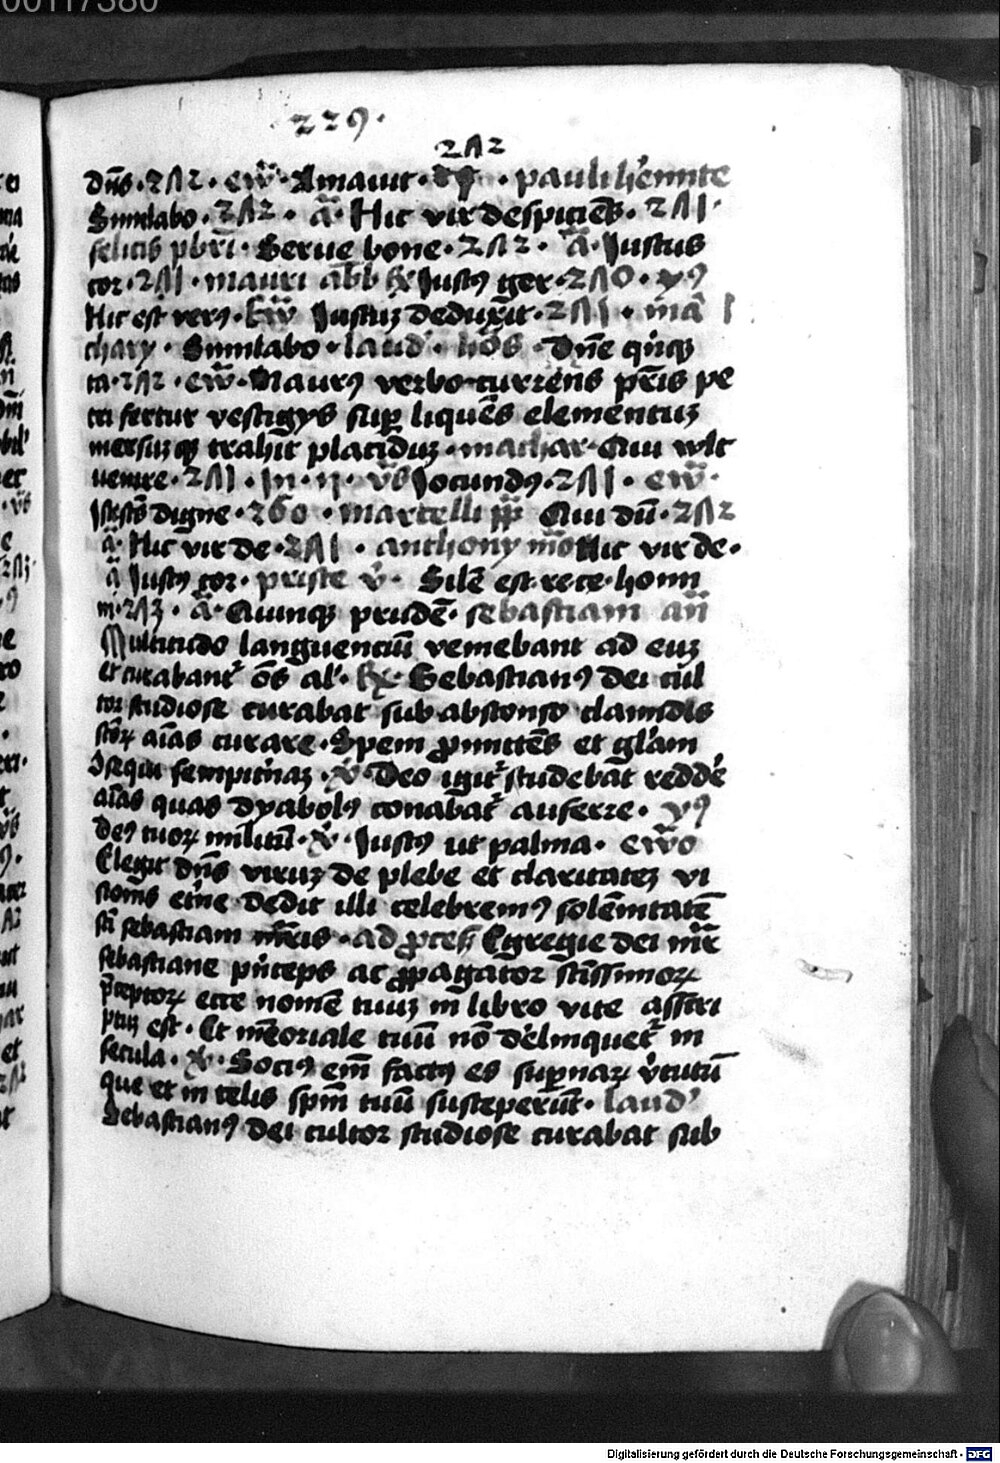 00117380
· 229 ·
2Λ2
dn̄s · 2Λ2 · ew̄ · Amauit · · pauli h'emite
Similabo · 2Λ2 · ā · Hic vir despiciēs · 2Λ1 ·
felicis pbr̄i · Serue bone · 2Λ2 · ā · Justus
cor · 2Λ1 · mauri abb Justꝰ ger · 2Λ0 ·
Hic est verꝰ · Justuz deduxit · 2Λ1 ·
Similabo · laud' · hōs · Dn̄e qn̄qꝫ
ta · 2Λ2 · ew̄ · Maurꝰ verbo currēns pr̄is pe
tri fertur vestigys suꝑ liquēs elementuꝫ
mersuꝫqꝫ trahit placiduꝫ · machar · Qui wlt
venire · 2Λ1 · In · ij · v̄b Jocundꝰ · 2Λ1 · ew̄ ·
Iste sc̄s digne · 260 · martelli pp̄ Qui dū · 2Λ2
ā · Hic vir de · 2Λ1 · anthony mō Hic vir de ·
ā Justꝰ cor · priste v̄ · Silē est rece · homi
ni · 2Λ3 · ā · Quinqꝫ prudē · sebastiani an̄
Multitudo languenciū veniebant ad euꝫ
et curabant' ōs al' · Sebastianꝰ dei cul
tor studiose curabat sub absconso clamidis
aīas curare · Spem ꝓmittēs et gl'am
sempit'naꝫ · v̄ · Deo igit' studebat redde'
aīas quas dyabolꝰ conabat' auferre · vꝰ
deꝰ tuoꝝ militū · v̄ · Justꝰ ut palma · ew̄o
Elegit dn̄s viruꝫ de plebe et claritateꝫ vi
sionis et'ne dedit illi celebremꝰ solēnitatē
sc̄i sebastiani mr̄is · ad ꝓcess Egregie dei mr̄
sebastiane p'nceps ac ꝓpagator sc̄issimoꝝ
p̄ceptoꝝ ecce nomē tuuꝫ in libro vite asscri
ptuꝫ est · Et mēoriale tuū nō delinquet' in
secula · v̄ · Sociꝰ em̄ factꝰ es suꝑnaꝝ v'tutū
que et in celis spm̄ tuū susceperūt · laud'
Sebastianꝰ dei cultor studiose curabat sub
Digitalisierung gefördert durch die Deutsche Forschungsgemeinschaft · DFG